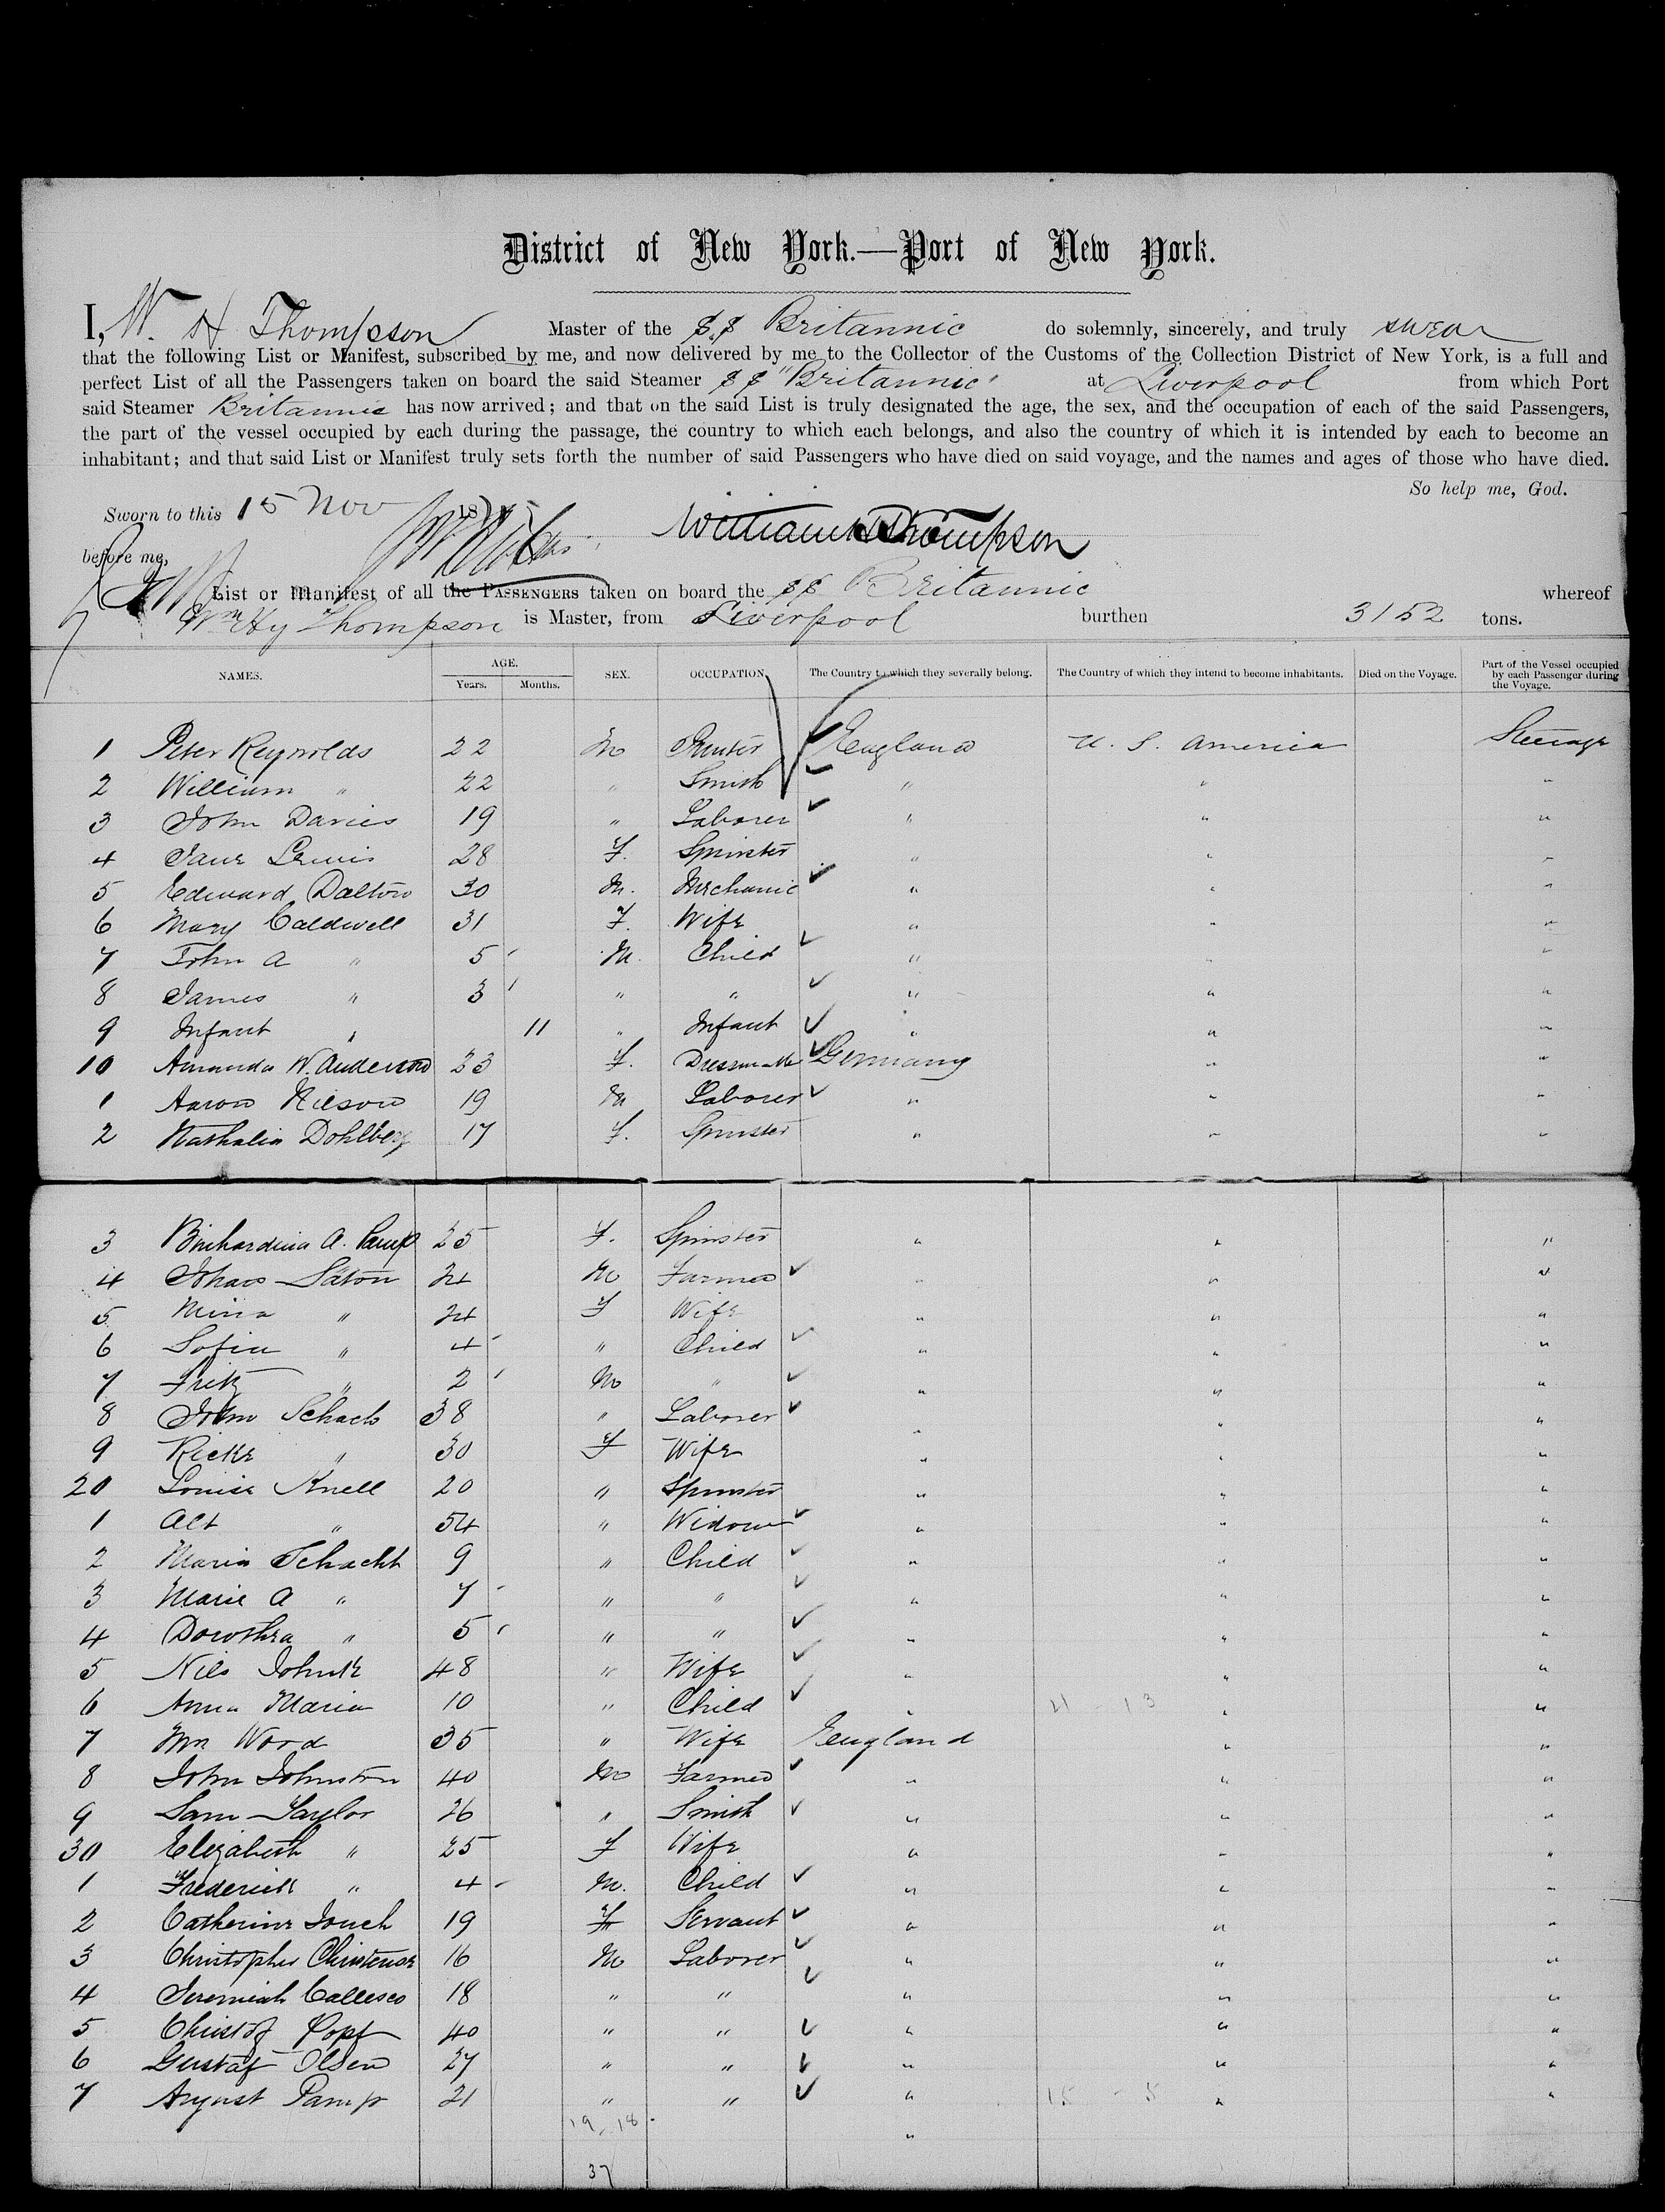 District of New York.—Port of New York.
I, W. H Thompson Master of the S.S Britannic do solemnly, sincerely, and truly swear
that the following List or Manifest, subscribed by me, and now delivered by me to the Collector of the Customs of the Collection District of New York, is a full and
perfect List of all the Passengers taken on board the said Steamer S S "Britannic" at Liverpool from which Port
said Steamer Britannic has now arrived; and that on the said List is truly designated the age, the sex, and the occupation of each of the said Passengers,
the part of the vessel occupied by each during the passage, the country to which each belongs, and also the country of which it is intended by each to become an
inhabitant; and that said List or Manifest truly sets forth the number of said Passengers who have died on said voyage, and the names and ages of those who have died.
So help me, God.
Sworn to this 15 Nov 187
William H Thompson
before me,
List or Manifest of all the PASSENGERS taken on board the SS Britannic whereof
Wm Hy Thompson is Master, from Liverpool burthen 3152 tons.
NAMES. AGE. Years. Months. SEX. OCCUPATION. The Country to which they severally belong. The Country of which they intend to become inhabitants. Died on the Voyage. Part of the Vessel occupied by each Passenger during the Voyage.
1 Peter Reynolds 22 M England U. S. America Steerage
2 William " 22 " Smith " " "
3 John Davies 19 " Laborer " " "
4 Jane Lewis 28 F. Spinster " " "
5 Edward Dalton 30 M. Mechanic " " "
6 Mary Caldwell 31 F. Wife " " "
7 John A " 5 M. Child " " "
8 James " 3 " " " " "
9 Infant " 11 " Infant " " "
10 Amanda W. Anderson 23 F. Germany " "
1 Aaron Nilson 19 M Laborer " " "
2 Nathalia Dohlberg 17 F. Spinster " " "
3 A. Pamp 25 F. Spinster " " "
4 Johan Saton 24 M Farmer " " "
5 Mina " 24 F Wife " " "
6 Sofia " 4 " Child " " "
7 Fritz " 2 M " " " "
8 John Schach 38 " Laborer " " "
9 Ricke " 30 F Wife " " "
20 Louise Knell 20 " Spinster " " "
1 Alt " 54 " Widow " " "
2 Maria Schacht 9 " Child " " "
3 Marie A " 7 " " " " "
4 Dorothea " 5 " " " " "
5 Nils 48 " Wife " " "
6 Anna Maria 10 " Child " " "
7 Wood 35 " Wife England " "
8 John Johnston 40 M Farmer " " "
9 Sam Taylor 26 " Smith " " "
30 Elizabeth " 25 F Wife " " "
1 Frederick " 4 M. Child " " "
2 Catherine 19 F Servant " " "
3 Christopher 16 M Laborer " " "
4 Jeremiah 18 " " " " "
5 Christof Popf 40 " " " " "
6 Gustaf Olsen 27 " " " " "
7 August Pamp 21 " " " " "
19 18 "
37